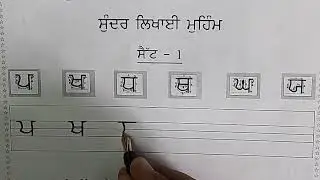 ਸੁੰਦਰ ਲਿਖਾਈ ਮੁਹਿੰਮ
ਸੈੱਟ - 1
ਪ ਖ ਧ ਥ ਘ ਯ
ਪ ਖ